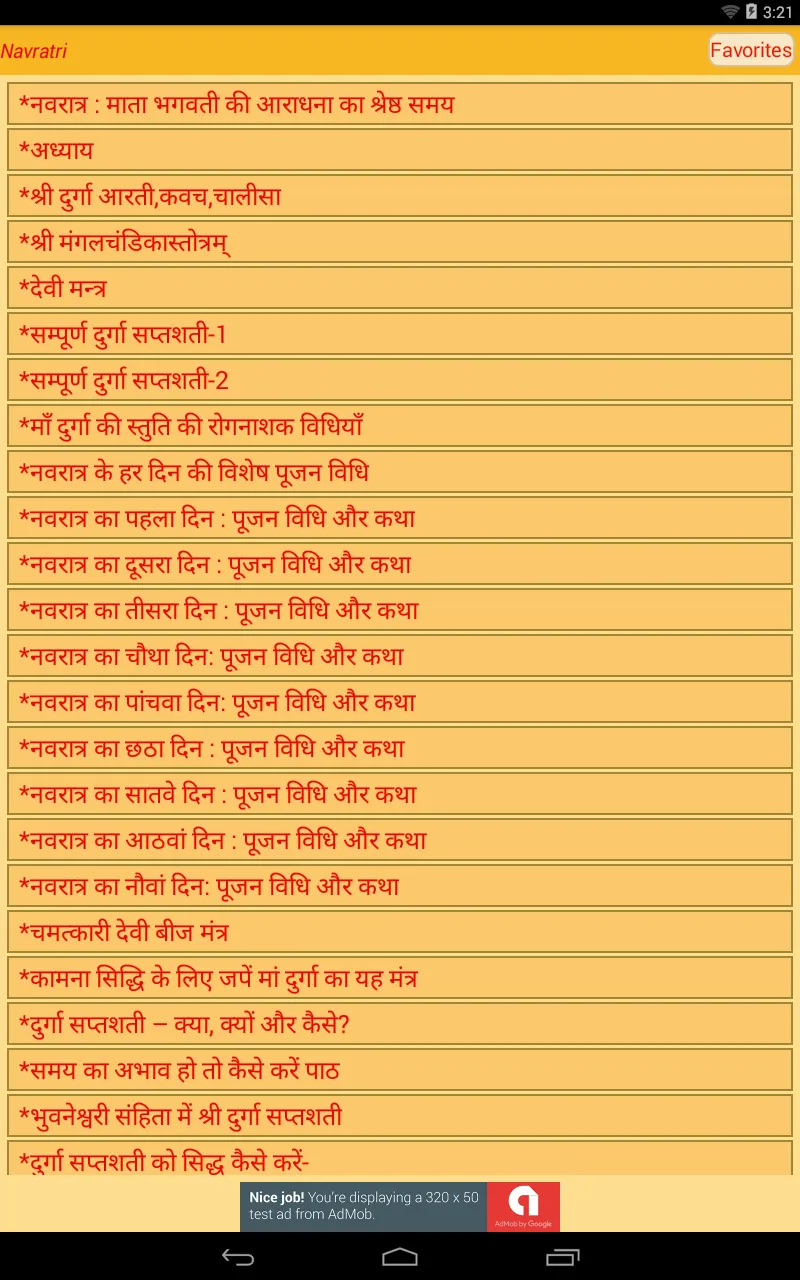 3:21
Navratri
Favorites
*नवरात्र : माता भगवती की आराधना का श्रेष्ठ समय
*अध्याय
*श्री दुर्गा आरती,कवच,चालीसा
*श्री मंगलचंडिकास्तोत्रम्
*देवी मन्त्र
*सम्पूर्ण दुर्गा सप्तशती-1
*सम्पूर्ण दुर्गा सप्तशती-2
*माँ दुर्गा की स्तुति की रोगनाशक विधियाँ
*नवरात्र के हर दिन की विशेष पूजन विधि
*नवरात्र का पहला दिन : पूजन विधि और कथा
*नवरात्र का दूसरा दिन : पूजन विधि और कथा
*नवरात्र का तीसरा दिन : पूजन विधि और कथा
*नवरात्र का चौथा दिन: पूजन विधि और कथा
*नवरात्र का पांचवा दिन: पूजन विधि और कथा
*नवरात्र का छठा दिन : पूजन विधि और कथा
*नवरात्र का सातवे दिन : पूजन विधि और कथा
*नवरात्र का आठवां दिन : पूजन विधि और कथा
*नवरात्र का नौवां दिन: पूजन विधि और कथा
*चमत्कारी देवी बीज मंत्र
*कामना सिद्धि के लिए जपें मां दुर्गा का यह मंत्र
*दुर्गा सप्तशती – क्या, क्यों और कैसे?
*समय का अभाव हो तो कैसे करें पाठ
*भुवनेश्वरी संहिता में श्री दुर्गा सप्तशती
*दुर्गा सप्तशती को सिद्ध कैसे करें-
Nice job! You're displaying a 320 x 50
test ad from AdMob.
AdMob by Google